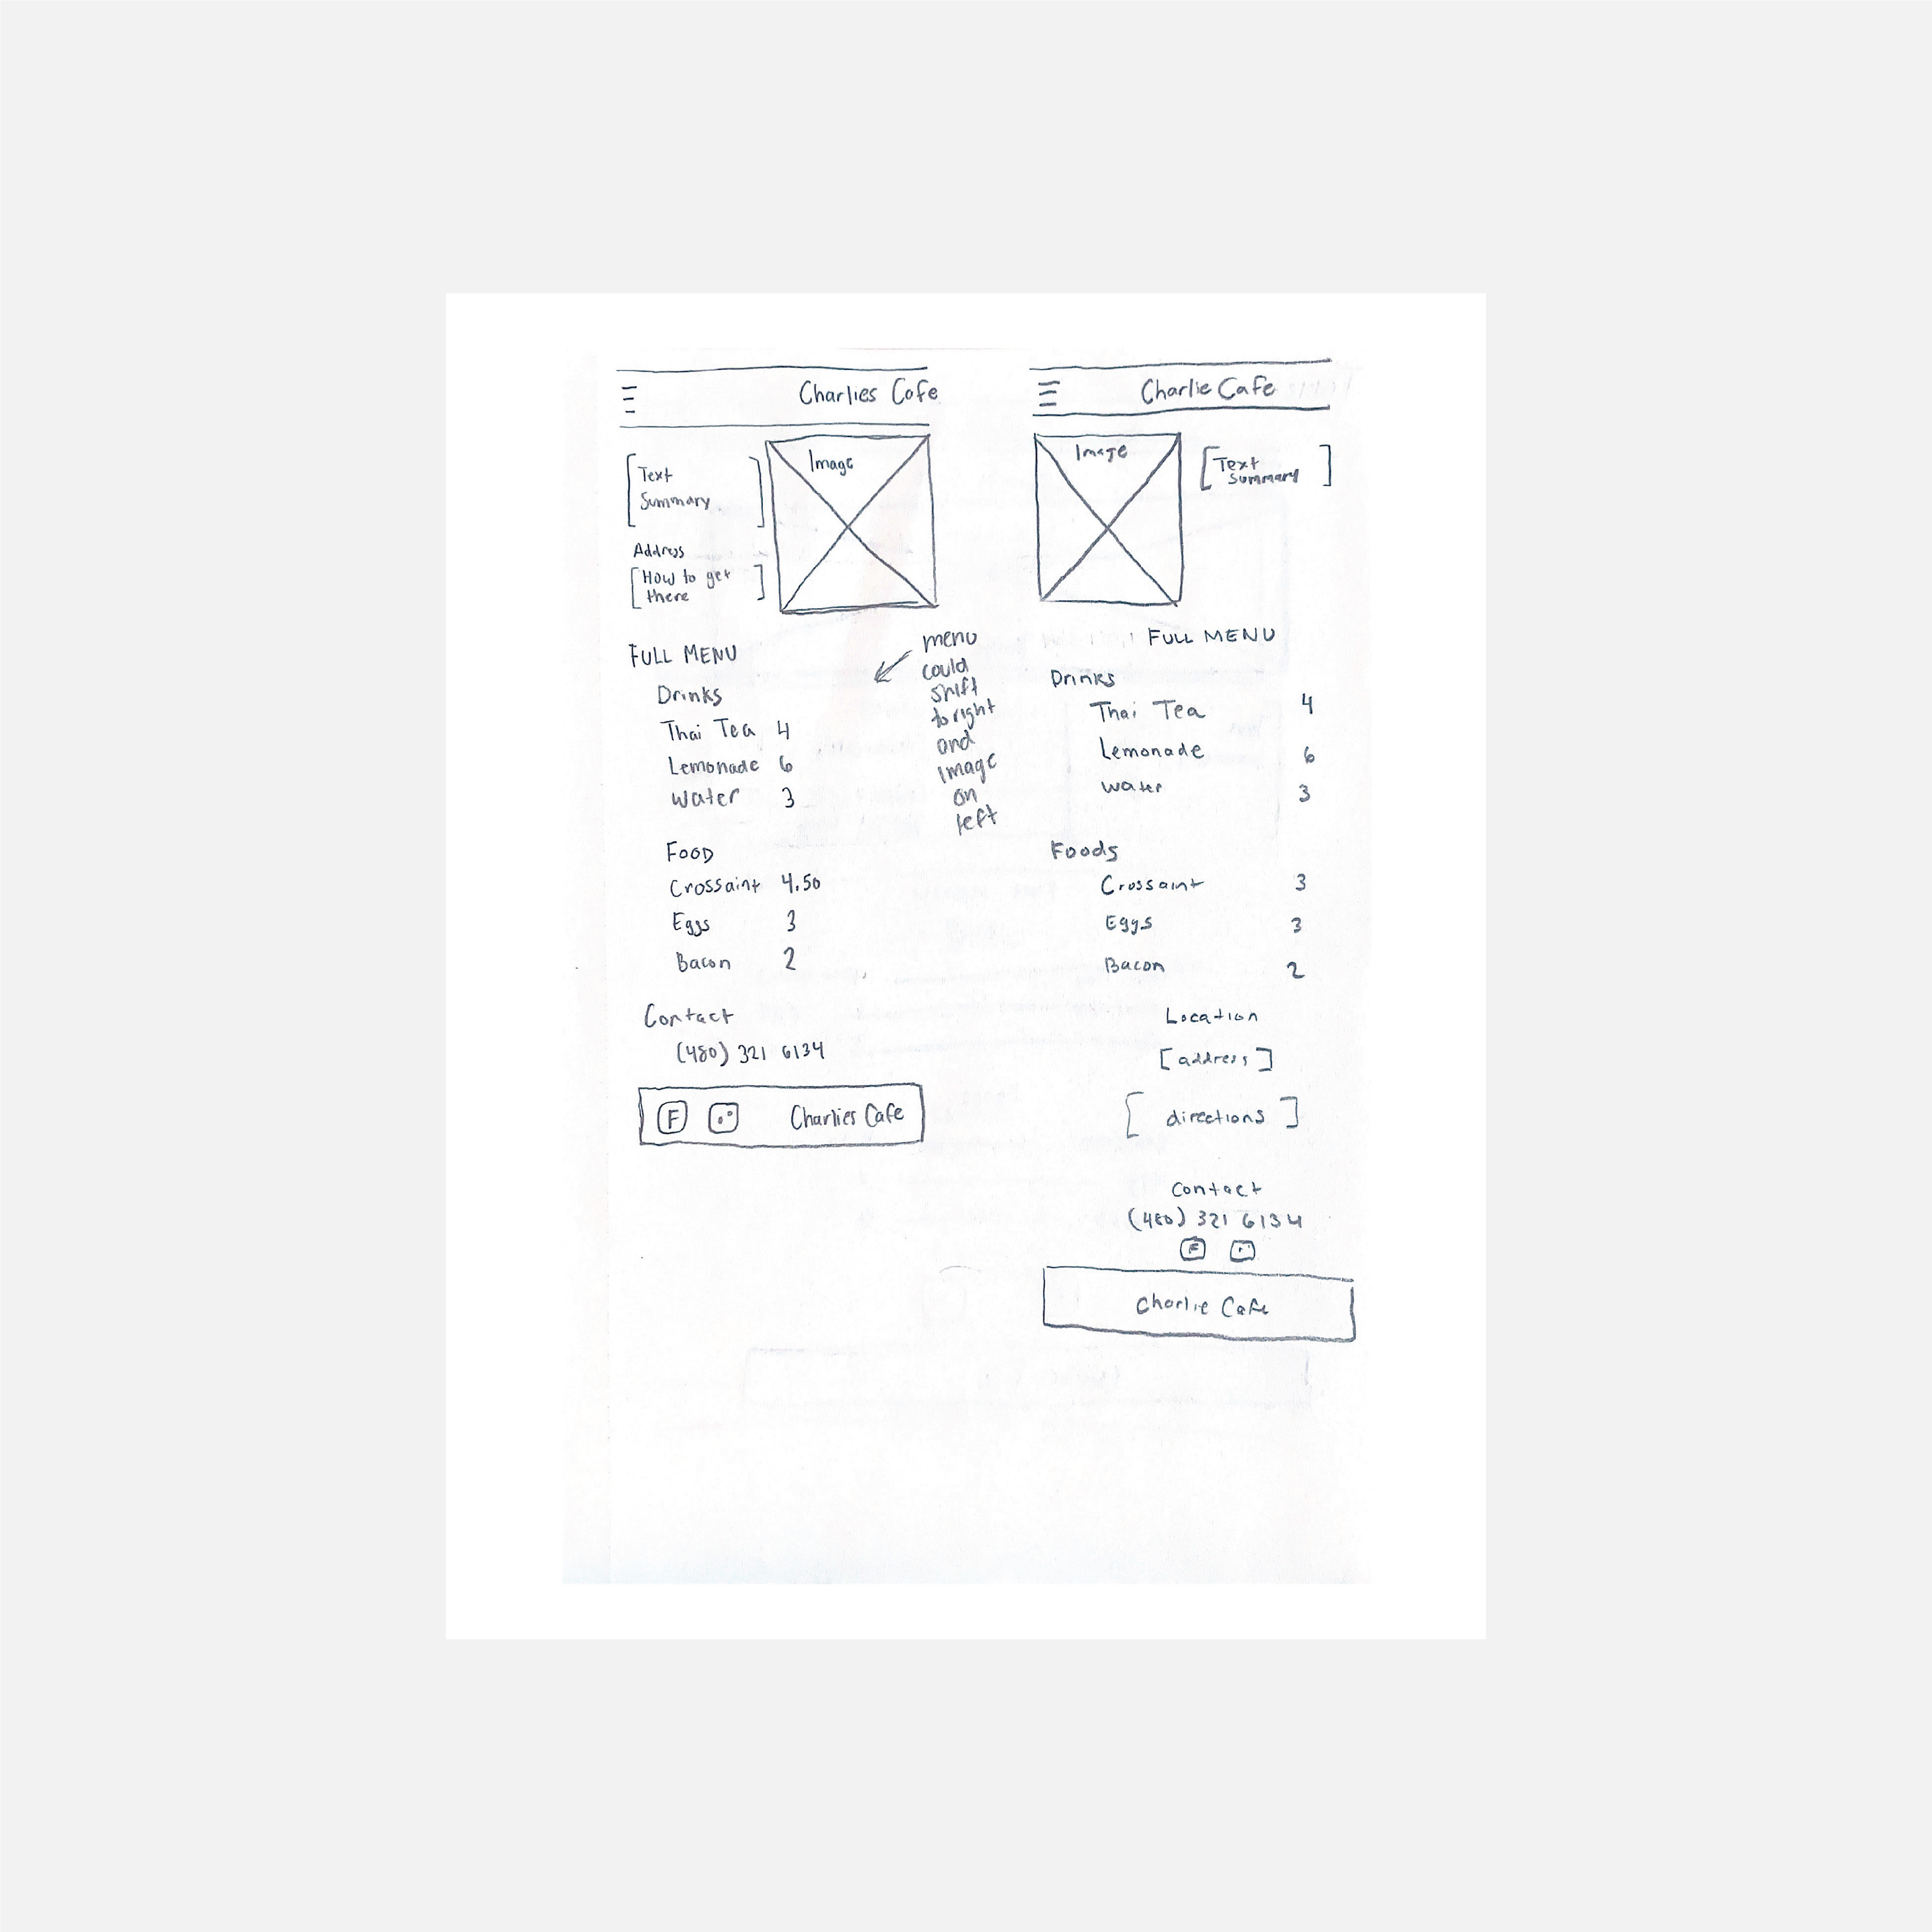 Charlies Cafe
Image
Text
Summary
Address
How to get
there
FULL MENU
Drinks
Thai Tea 4
Lemonade 6
water 3
FOOD
Crossaint 4.50
Eggs 3
Bacon 2
Contact
(480) 321 6134
F Charlies Cafe
menu
could
shift
to right
and
image
on
left
Charlie Cafe
Image
Text
Summary
FULL MENU
Drinks
Thai Tea 4
Lemonade 6
water 3
Foods
Crossaint 3
Eggs 3
Bacon 2
Location
[address]
[directions]
Contact
(480) 321 6134
F
Charlie Cafe